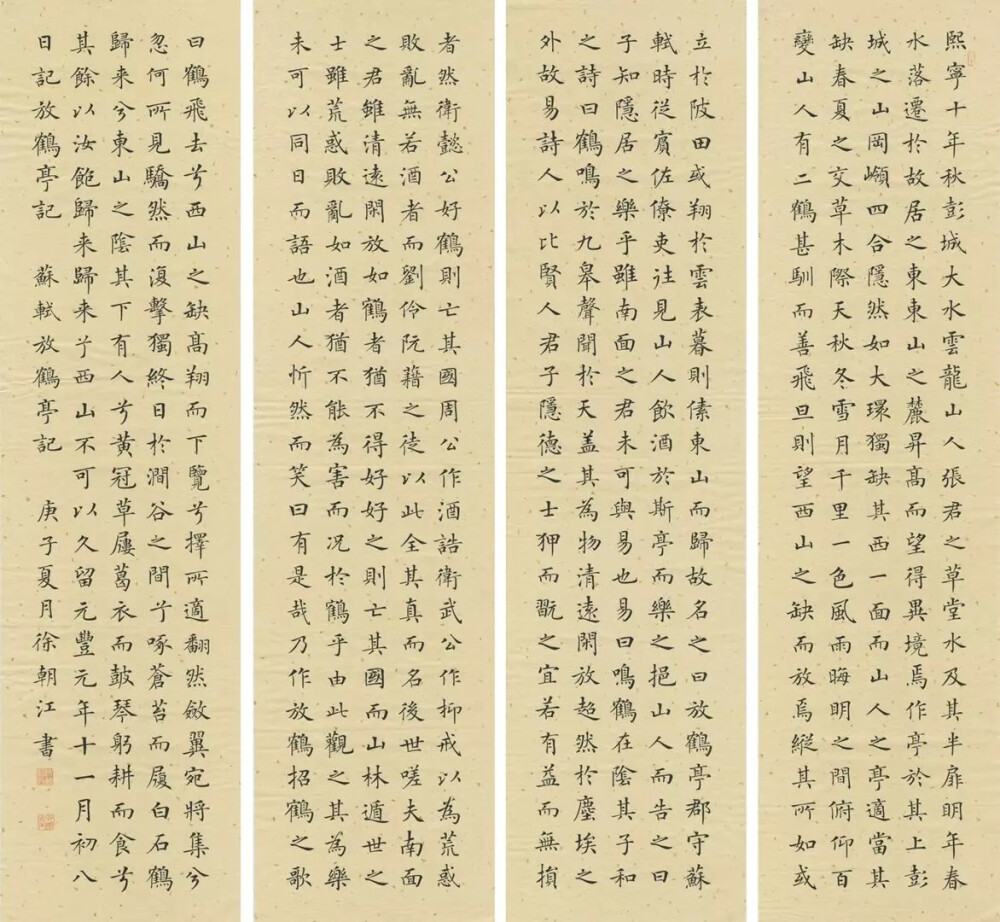 熙寧十年秋彭城大水雲龍山人張君之草堂水及其半扉明年春
水落遷於故居之東東山之麓昇高而望得異境焉作亭於其上彭
城之山岡嶺四合隱然如大環獨缺其西一面而山人之亭適當其
缺春夏之交草木際天秋冬雪月千里一色風雨晦明之間俯仰百
變山人有二鶴甚馴而善飛旦則望西山之缺而放焉縱其所如或
立於陂田或翔於雲表暮則傃東山而歸故名之曰放鶴亭郡守蘇
軾時從賓佐僚吏往見山人飲酒於斯亭而樂之挹山人而告之曰
子知隱居之樂乎雖南面之君未可與易也易曰鳴鶴在陰其子和
之詩曰鶴鳴於九皋聲聞於天盖其為物清遠閑放超然於塵埃之
外故易詩人以比賢人君子隱德之士狎而翫之宜若有益而無損
者然衛懿公好鶴則亡其國周公作酒誥衛武公作抑戒以為荒惑
敗亂無若酒者而劉伶阮籍之徒以此全其真而名後世嗟夫南面
之君雖清遠閑放如鶴者猶不得好好之則亡其國而山林遁世之
士雖荒惑敗亂如酒者猶不能為害而況於鶴乎由此觀之其為樂
未可以同日而語也山人忻然而笑曰有是哉乃作放鶴招鶴之歌
曰鶴飛去兮西山之缺高翔而下覽兮擇所適翻然斂翼宛將集兮
忽何所見驕然而復擊獨終日於澗谷之間兮啄蒼苔而履白石鶴
歸來兮東山之陰其下有人兮黃冠草屨葛衣而鼓琴躬耕而食兮
其餘以汝飽歸來歸來兮西山不可以久留元豐元年十一月初八
日記放鶴亭記 蘇軾放鶴亭記 庚子夏月徐朝江書